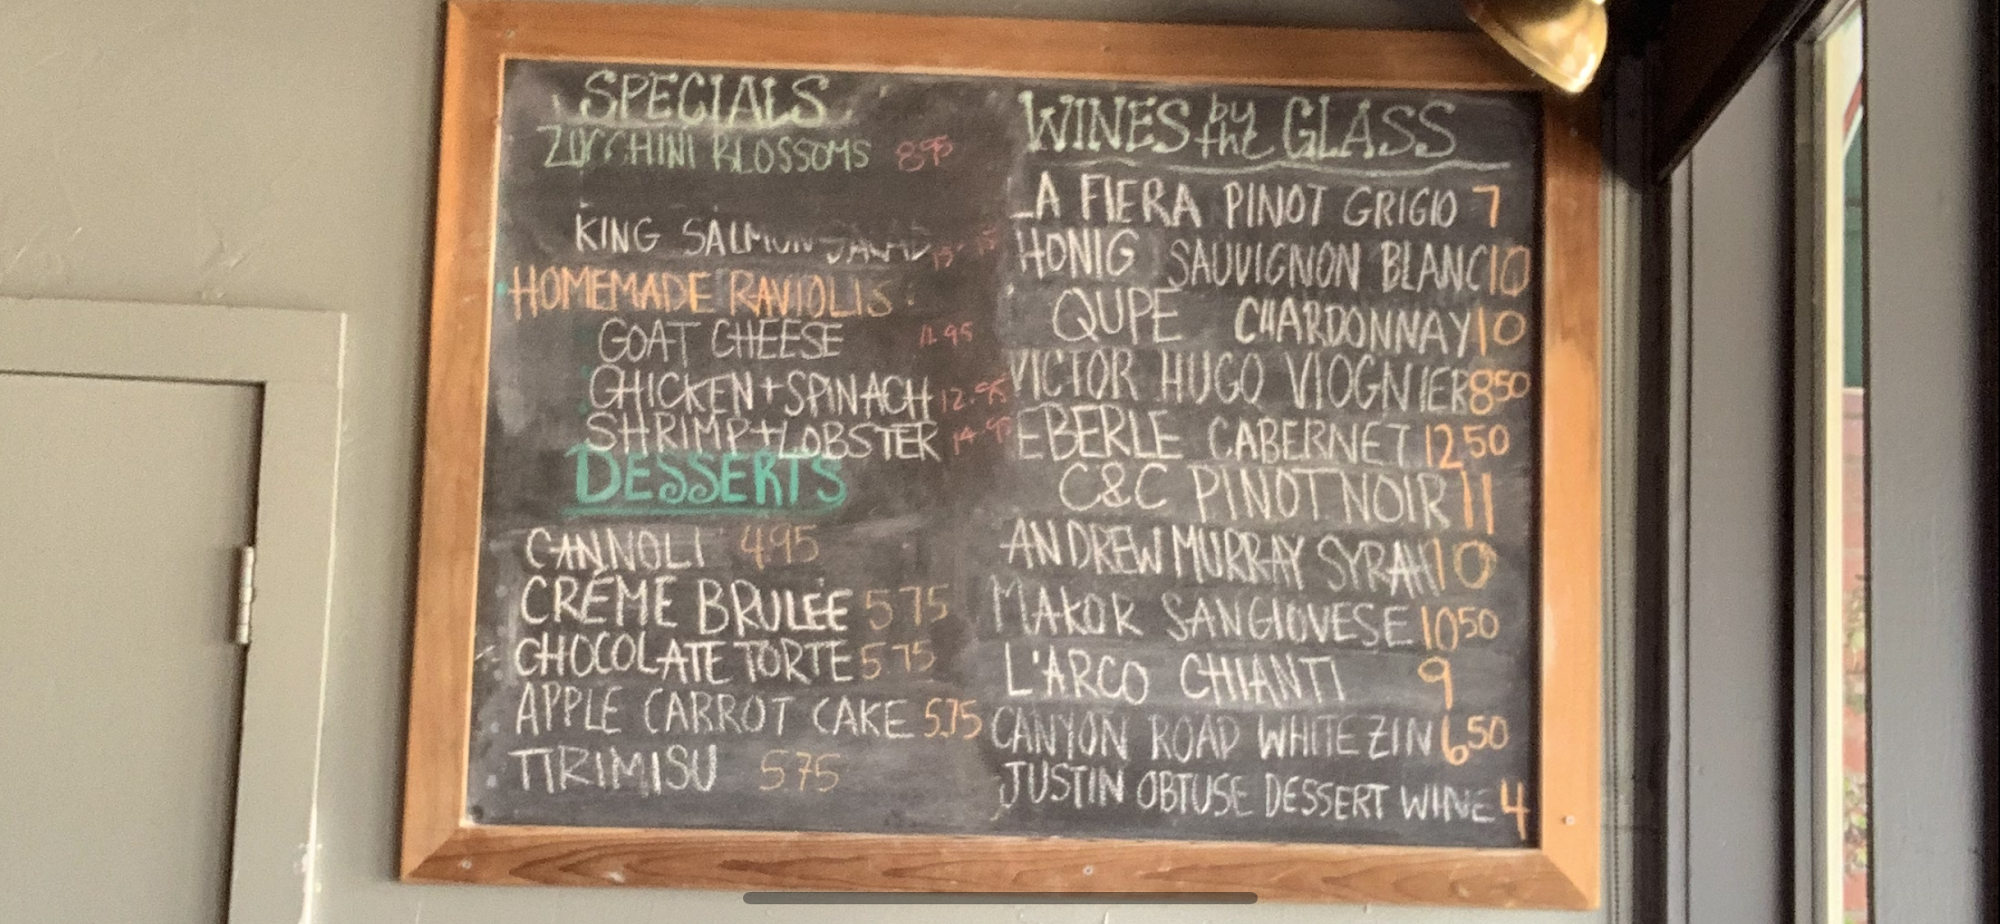 SPECIALS
ZUCCHINI BLOSSOMS 8.95
KING SALMON SALAD
HOMEMADE RAVIOLIS:
GOAT CHEESE 11.95
CHICKEN + SPINACH 12.95
SHRIMP + LOBSTER 14.95
DESSERTS
CANNOLI 4.95
CRÉME BRULÉE 5 75
CHOCOLATE TORTE 5 75
APPLE CARROT CAKE 5.75
TIRIMISU 5.75
WINES by the GLASS
LA FIERA PINOT GRIGIO 7
HONIG SAUVIGNON BLANC 10
QUPE CHARDONNAY 10
VICTOR HUGO VIOGNIER 8 50
EBERLE CABERNET 12 50
C&C PINOT NOIR 11
ANDREW MURRAY SYRAH 10
MAKOR SANGIOVESE 10 50
L'ARCO CHIANTI 9
CANYON ROAD WHITE ZIN 6 50
JUSTIN OBTUSE DESSERT WINE 4